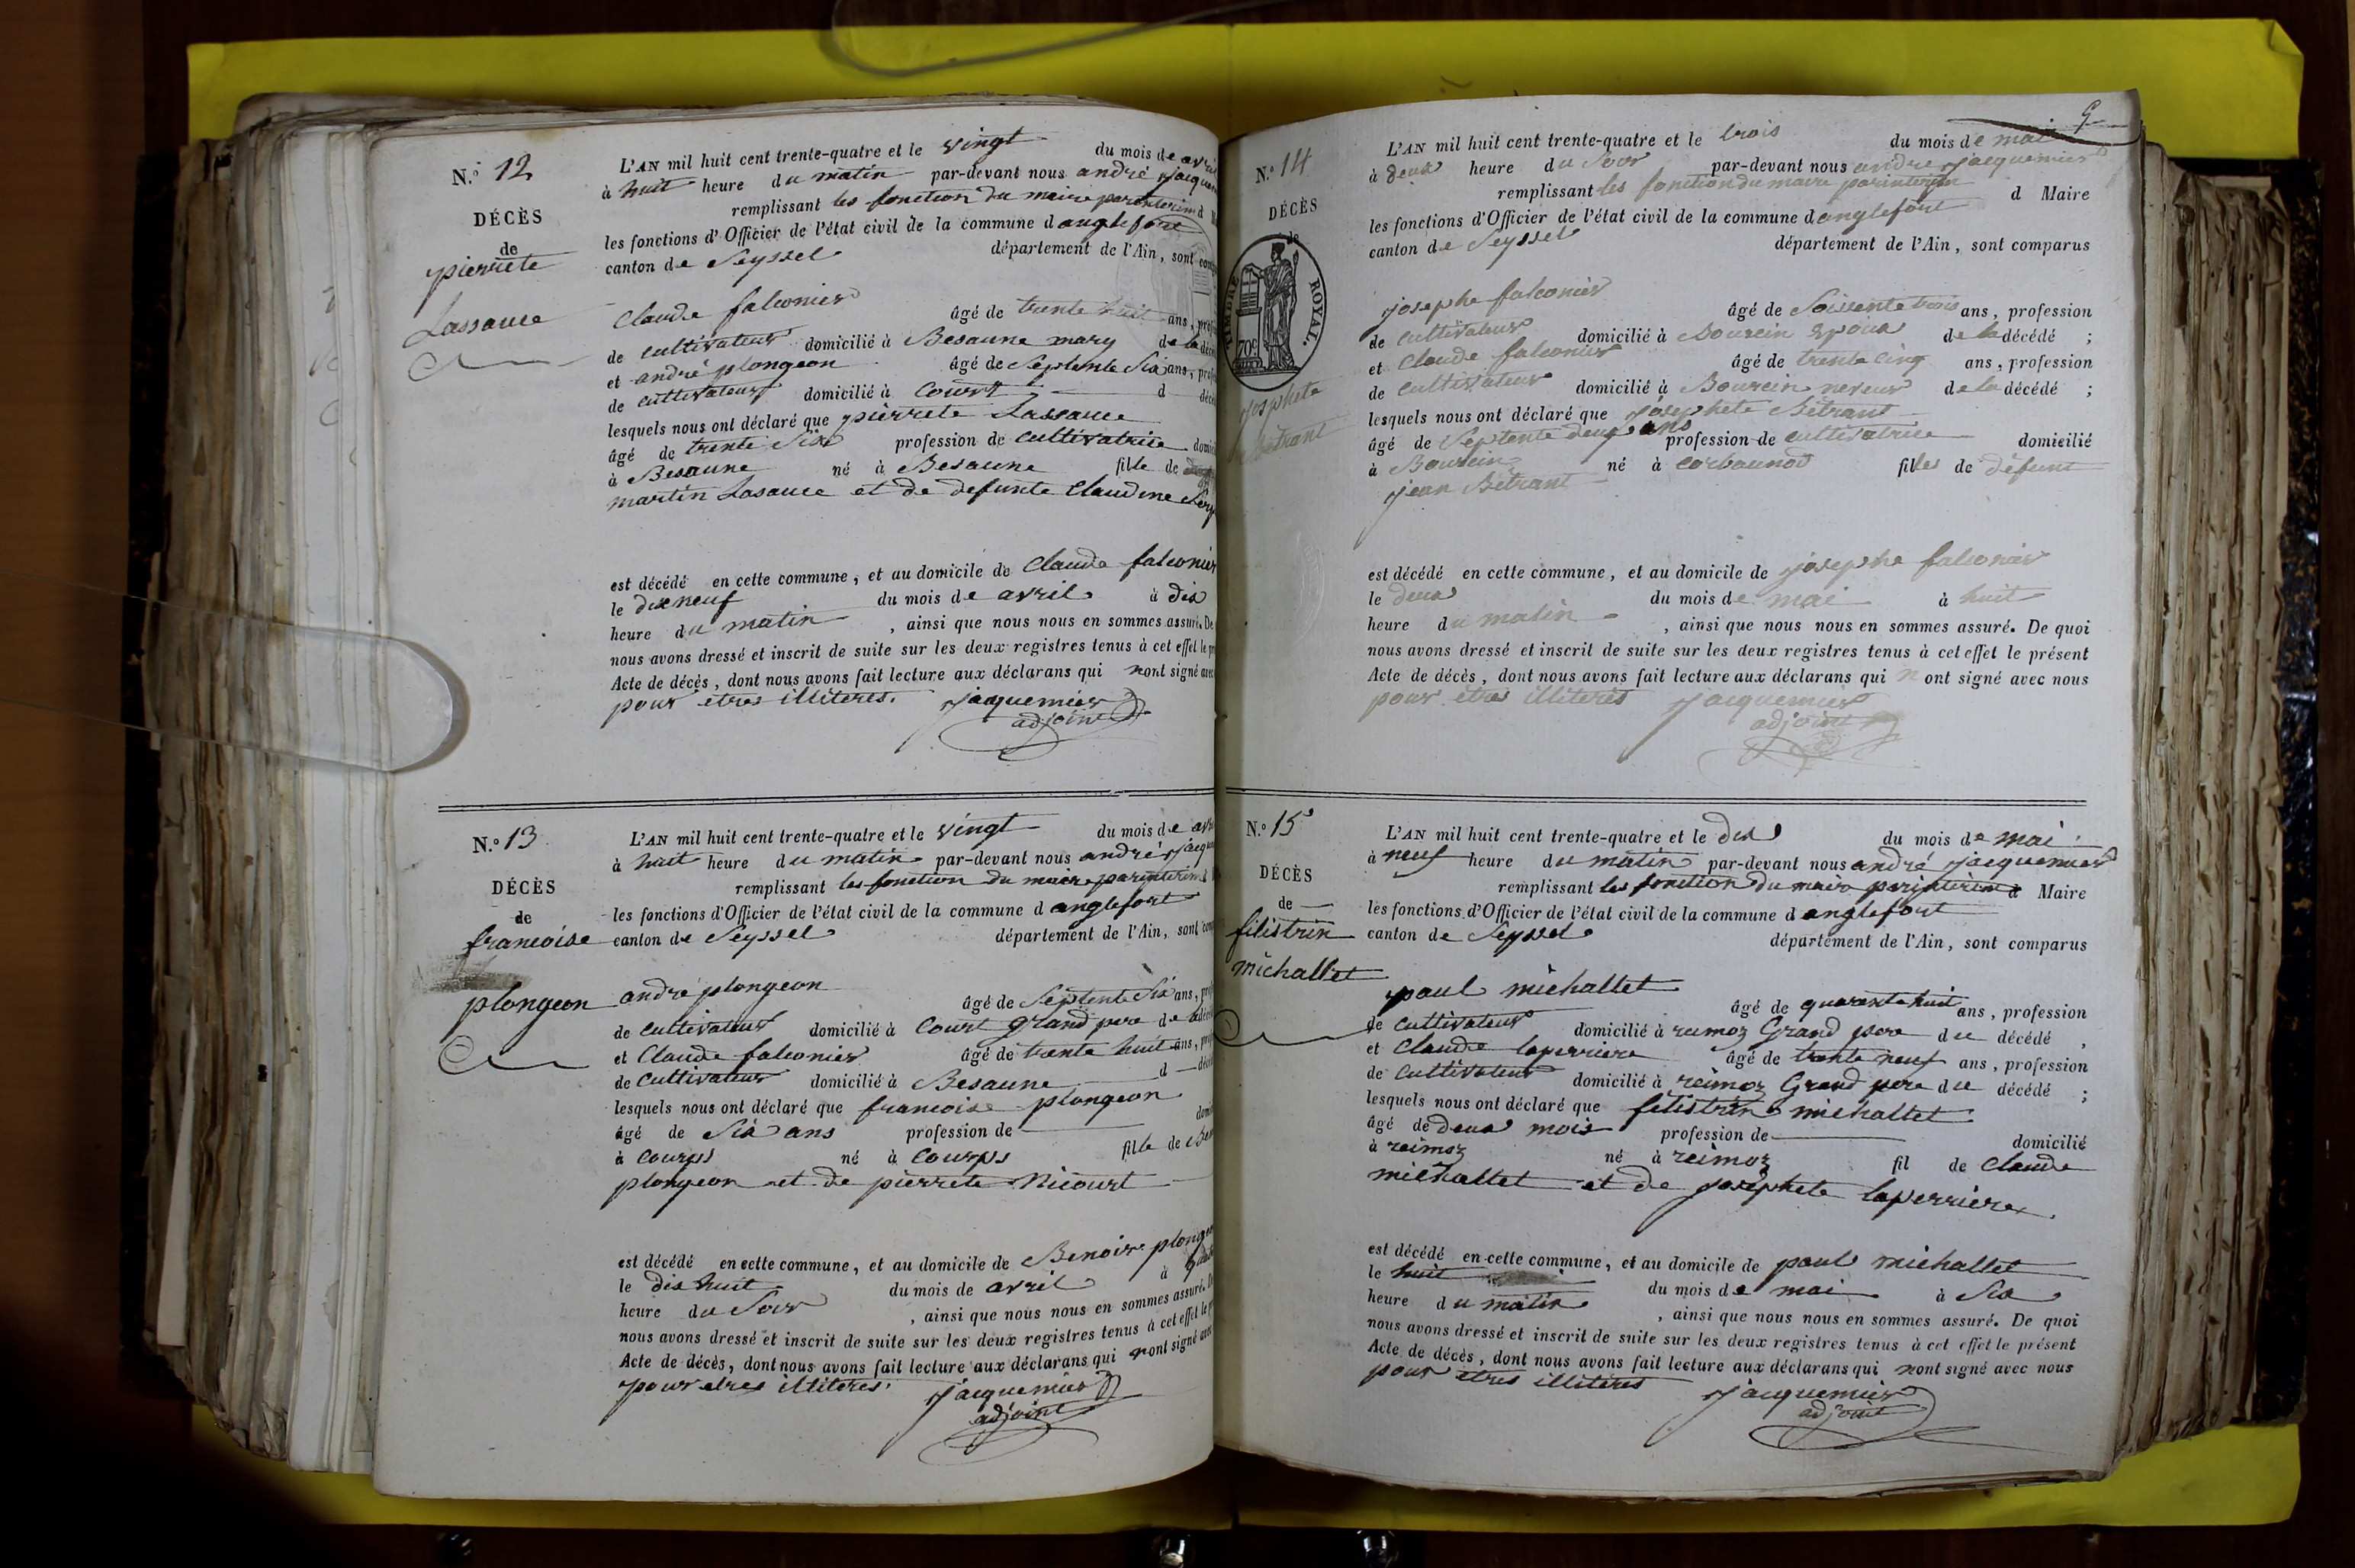 N.º 12
DÉCÈS
de
pierrete
Lassauce
L'AN mil huit cent trente-quatre et le vingt du mois de avril
à huit heure du matin par-devant nous andré jacquem
remplissant les fonction du maire parinterim d
les fonctions d'Officier de l'état civil de la commune d anglefort
canton de Seyssel département de l'Ain, sont
Claude falconier âgé de trente huit ans,
de cultivateur domicilié à Besaune mary de la
et andré plongeon âgé de Septente Six ans,
de cultivateur domicilié à Court d
lesquels nous ont déclaré que pierrete Lassauce
âgé de trente Six profession de cultivatrice
à Besaune né à Besaune fille de
martin Lasauce et de defunte Claudine
est décédé en cette commune, et au domicile de Claude falconier
le dix neuf du mois de avril à dix
heure du matin , ainsi que nous nous en sommes assuré. De
nous avons dressé et inscrit de suite sur les deux registres tenus à cet effet le
Acte de décès, dont nous avons fait lecture aux déclarans qui nont signé avec
pour êtres illiteres. jacquemier
adjoint
N.º 13
DÉCÈS
de
francoise
plongeon
L'AN mil huit cent trente-quatre et le vingt du mois de avr
à huit heure du matin par-devant nous andré jacq
remplissant les fonction du maire parinterim d
les fonctions d'Officier de l'état civil de la commune d anglefort
canton de Seyssel département de l'Ain, sont
andré plongeon âgé de Septente Six ans,
de cultivateur domicilié à Court grand pere de la
et Claude falconier âgé de trente huit ans,
de cultivateur domicilié à Besaune d
lesquels nous ont déclaré que francoise plongeon
âgé de Six ans profession de
à courss né à courss fille de
plongeon et de pierrete Nicourt
est décédé en cette commune, et au domicile de Benoir plongeon
le dix huit du mois de avril à
heure du Soir , ainsi que nous nous en sommes assuré.
nous avons dressé et inscrit de suite sur les deux registres tenus à cet effet le
Acte de décès, dont nous avons fait lecture aux déclarans qui nont signé avec
pour etres illiteres. jacquemier
adjoint
9
N.º 14
DÉCÈS
de
TIMBRE ROYAL.
70c
josphete
Betrant
L'AN mil huit cent trente-quatre et le trois du mois de mai
à deux heure du Soir par-devant nous andre jacquemier
remplissant les fonction du maire parinterim d Maire
les fonctions d'Officier de l'état civil de la commune d anglefort
canton de Seyssel département de l'Ain, sont comparus
josephe falconier âgé de Soissente trois ans, profession
de cultivateur domicilié à Bourcin Epoux de la décédé ;
et Claude falconier âgé de trente Cinq ans, profession
de cultivateur domicilié à Bourcin neveur de la décédé ;
lesquels nous ont déclaré que josephete Bétrant
âgé de Septente deux ans profession de cultivatrice domicilié
à Bourcin né à corbaunod filles de défunt
jean Bétrant
est décédé en cette commune, et au domicile de josephe falconier
le deux du mois de mai à huit
heure du matin , ainsi que nous nous en sommes assuré. De quoi
nous avons dressé et inscrit de suite sur les deux registres tenus à cet effet le présent
Acte de décès, dont nous avons fait lecture aux déclarans qui n ont signé avec nous
pour êtres illiterès jacquemier
adjoint
N.º 15
DÉCÈS
de
filistrin
michallet
L'AN mil huit cent trente-quatre et le dix du mois de mai
à neuf heure du matin par-devant nous andré jacquemier
remplissant les fonction du maire parinterim d Maire
les fonctions d'Officier de l'état civil de la commune d anglefort
canton de Seyssel département de l'Ain, sont comparus
paul michallet âgé de quarante huit ans, profession
de cultivateur domicilié à reimoz Grand pere du décédé ,
et Claude laperriere âgé de trente neuf ans, profession
de cultivateur domicilié à reimoz Grand pere du décédé ;
lesquels nous ont déclaré que filistrin michallet
âgé de deux mois profession de domicilié
à reimoz né à reimoz fil de Claude
michallet et de josèphete laperriere.
est décédé en cette commune, et au domicile de paul michallet
le huit du mois de mai à Six
heure du matin , ainsi que nous nous en sommes assuré. De quoi
nous avons dressé et inscrit de suite sur les deux registres tenus à cet effet le présent
Acte de décès, dont nous avons fait lecture aux déclarans qui nont signé avec nous
pour etres illiterès jacquemier
adjoint